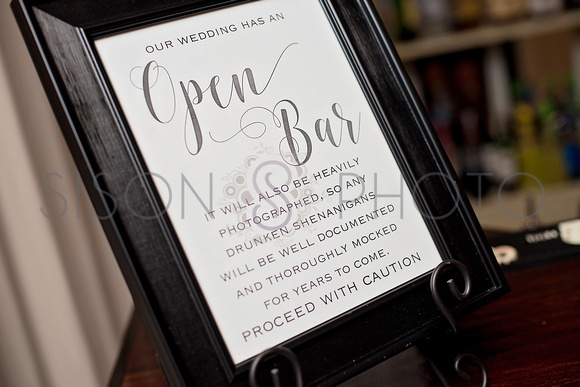 OUR WEDDING HAS AN
Open
Bar
IT WILL ALSO BE HEAVILY
PHOTOGRAPHED, SO ANY
DRUNKEN SHENANIGANS
WILL BE WELL DOCUMENTED
AND THOROUGHLY MOCKED
FOR YEARS TO COME.
PROCEED WITH CAUTION
SISSON S PHOTO